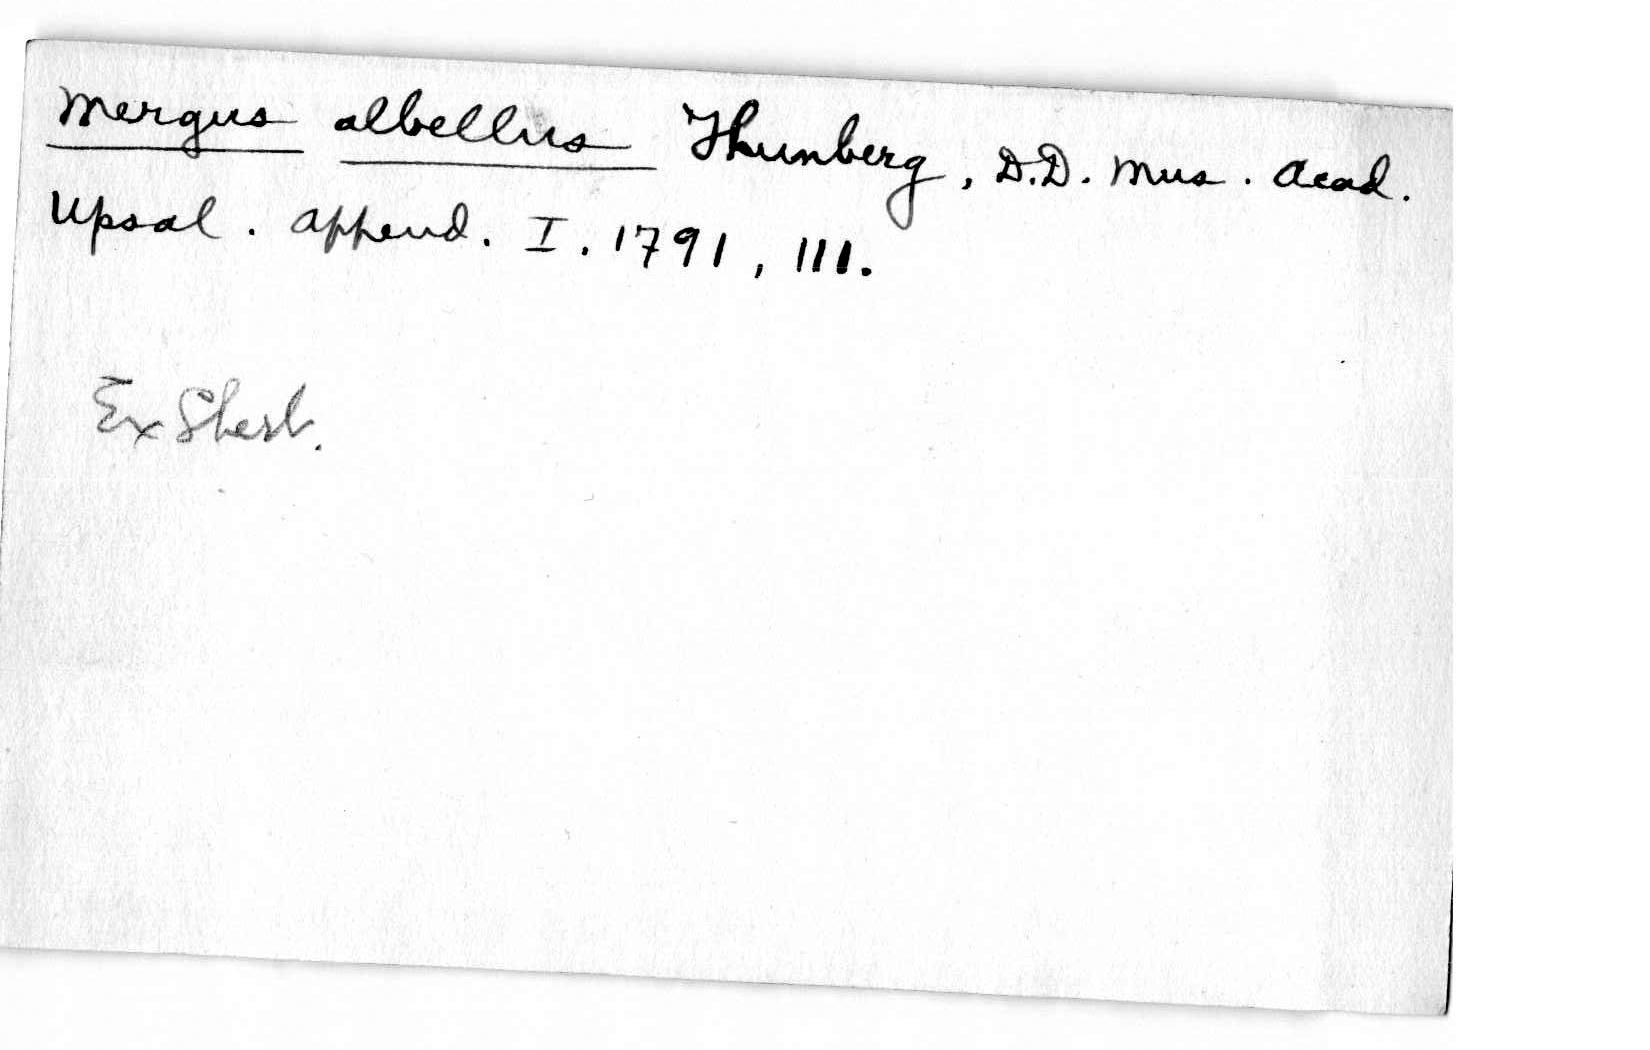 Mergus albellus Thunberg, D.D. Mus. Acad.
Upsal. Append. I. 1791, 111.
Ex Sherb.